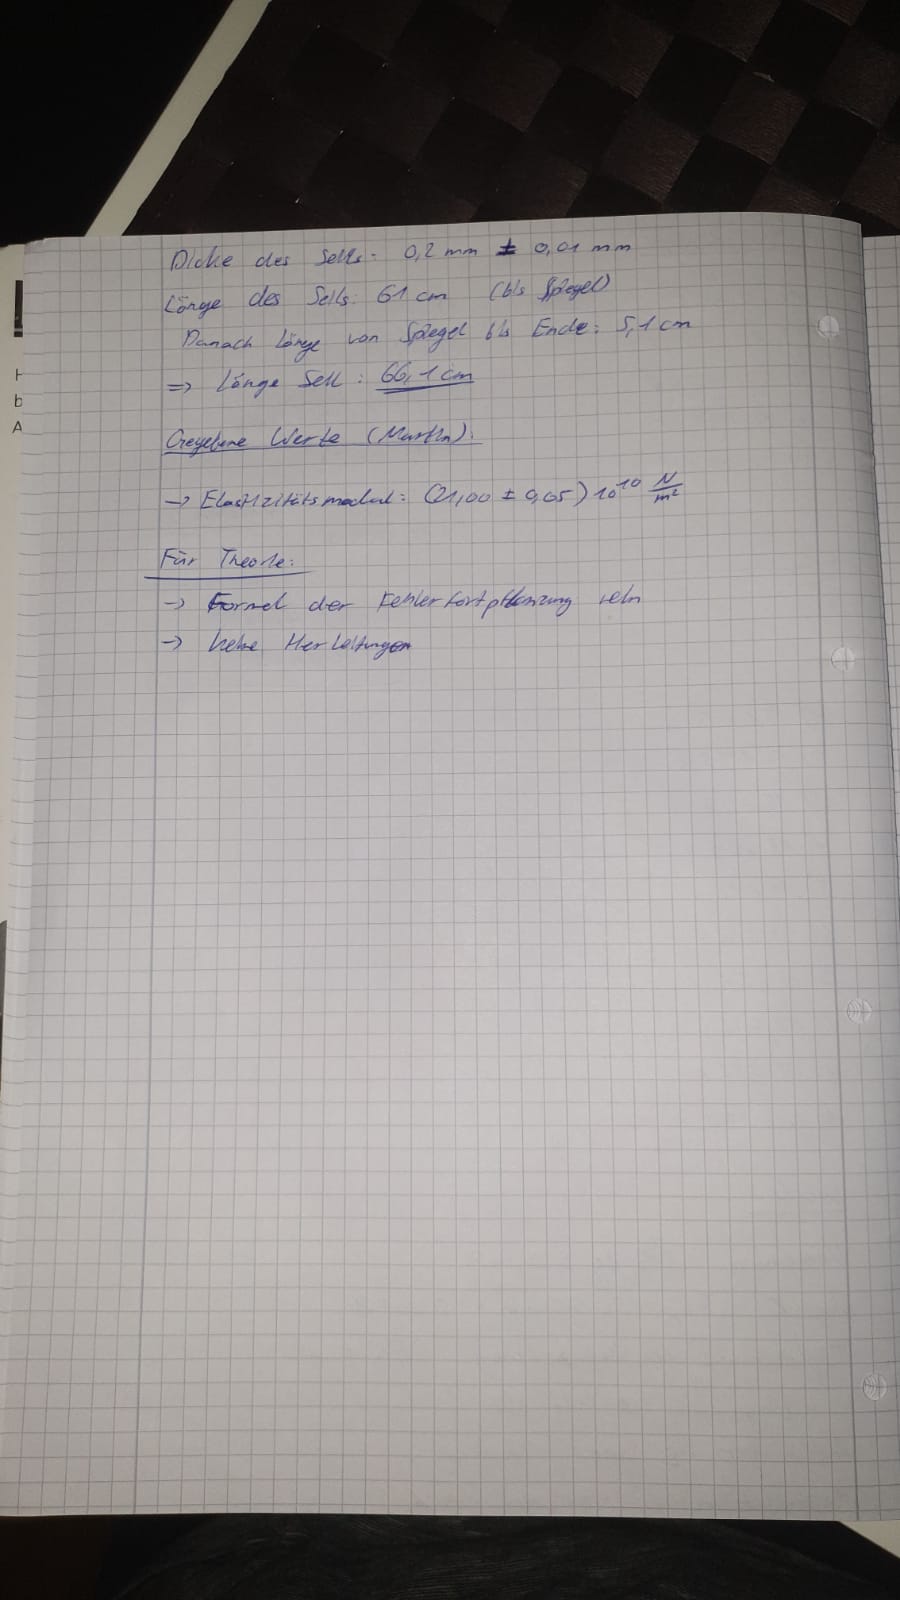 Dicke des Seils: 0,2 mm ± 0,01 mm
Länge des Seils: 61 cm (bis Spiegel)
Danach Länge von Spiegel bis Ende: 5,1 cm
=> Länge Seil: 66,1 cm
Gegebene Werte (Martin):
-> Elastizitätsmodul: (21,00 ± 0,05) 10^10 N/m²
Für Theorie:
-> Formel der Fehlerfortpflanzung rein
-> keine Herleitungen
H
b
A